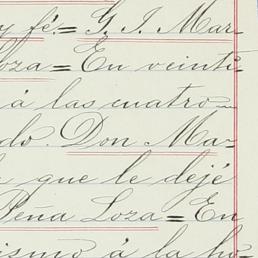 y fé.= G. I. Mar-
Loza = En veinti-
á las cuatro
do. Don Ma-
que le dejé
Peña Loza = En
ismo á la ho-